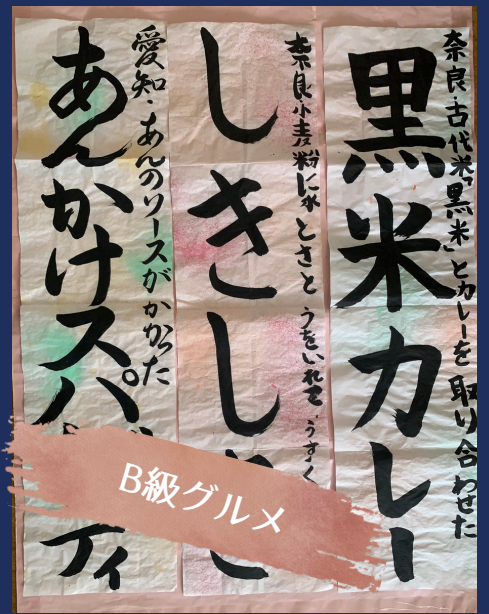 奈良・古代米「黒米」とカレーを取り合わせた
黒米カレー
奈良・小麦粉に水とさとうをいれて、うすく
しきし
愛知・あんのソースがかかった
あんかけスパ ティ
B級グルメ